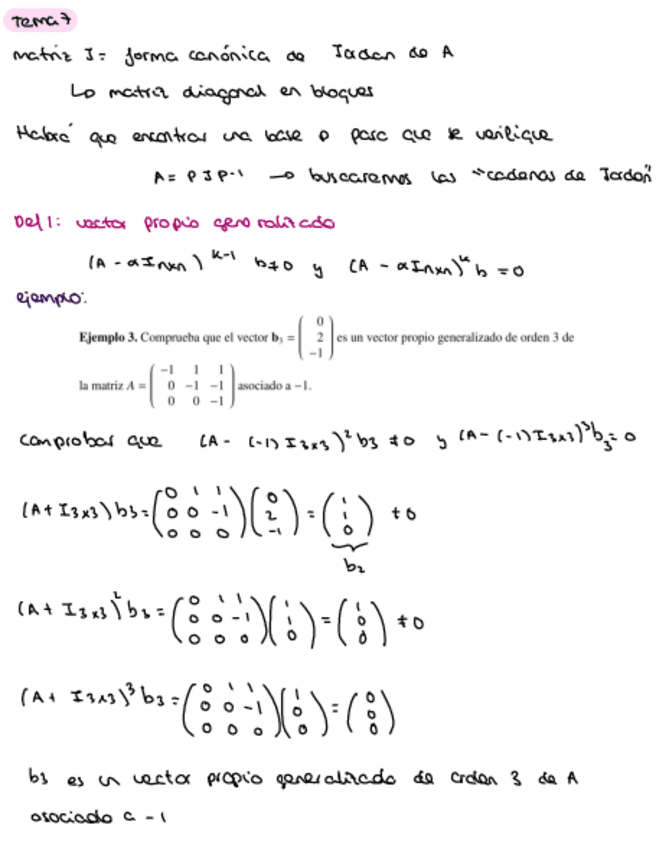 Tema 7
matriz J = forma canónica de Jordan de A
↳ matriz diagonal en bloques
Habrá que encontrar una base p para que se verifique
A = P J P-1 → buscaremos las "cadenas de Jordan"
Def 1: vector propio generalizado
(A - αInxn)^k-1 b ≠ 0 y (A - αInxn)^k b = 0
ejemplo:
Ejemplo 3. Comprueba que el vector b₃ = ( 0 2 -1 ) es un vector propio generalizado de orden 3 de
la matriz A = ( -1 1 1 / 0 -1 -1 / 0 0 -1 ) asociado a −1.
comprobar que (A - (-1) I3x3)² b3 ≠ 0 y (A - (-1) I3x3)³ b3 = 0
(A + I3x3) b3 = ( 0 1 1 / 0 0 -1 / 0 0 0 ) ( 0 2 -1 ) = ( 1 1 0 ) ≠ 0
b2
(A + I3x3)² b3 = ( 0 1 1 / 0 0 -1 / 0 0 0 ) ( 1 1 0 ) = ( 1 0 0 ) ≠ 0
(A + I3x3)³ b3 = ( 0 1 1 / 0 0 -1 / 0 0 0 ) ( 1 0 0 ) = ( 0 0 0 )
b3 es un vector propio generalizado de orden 3 de A
asociado a -1